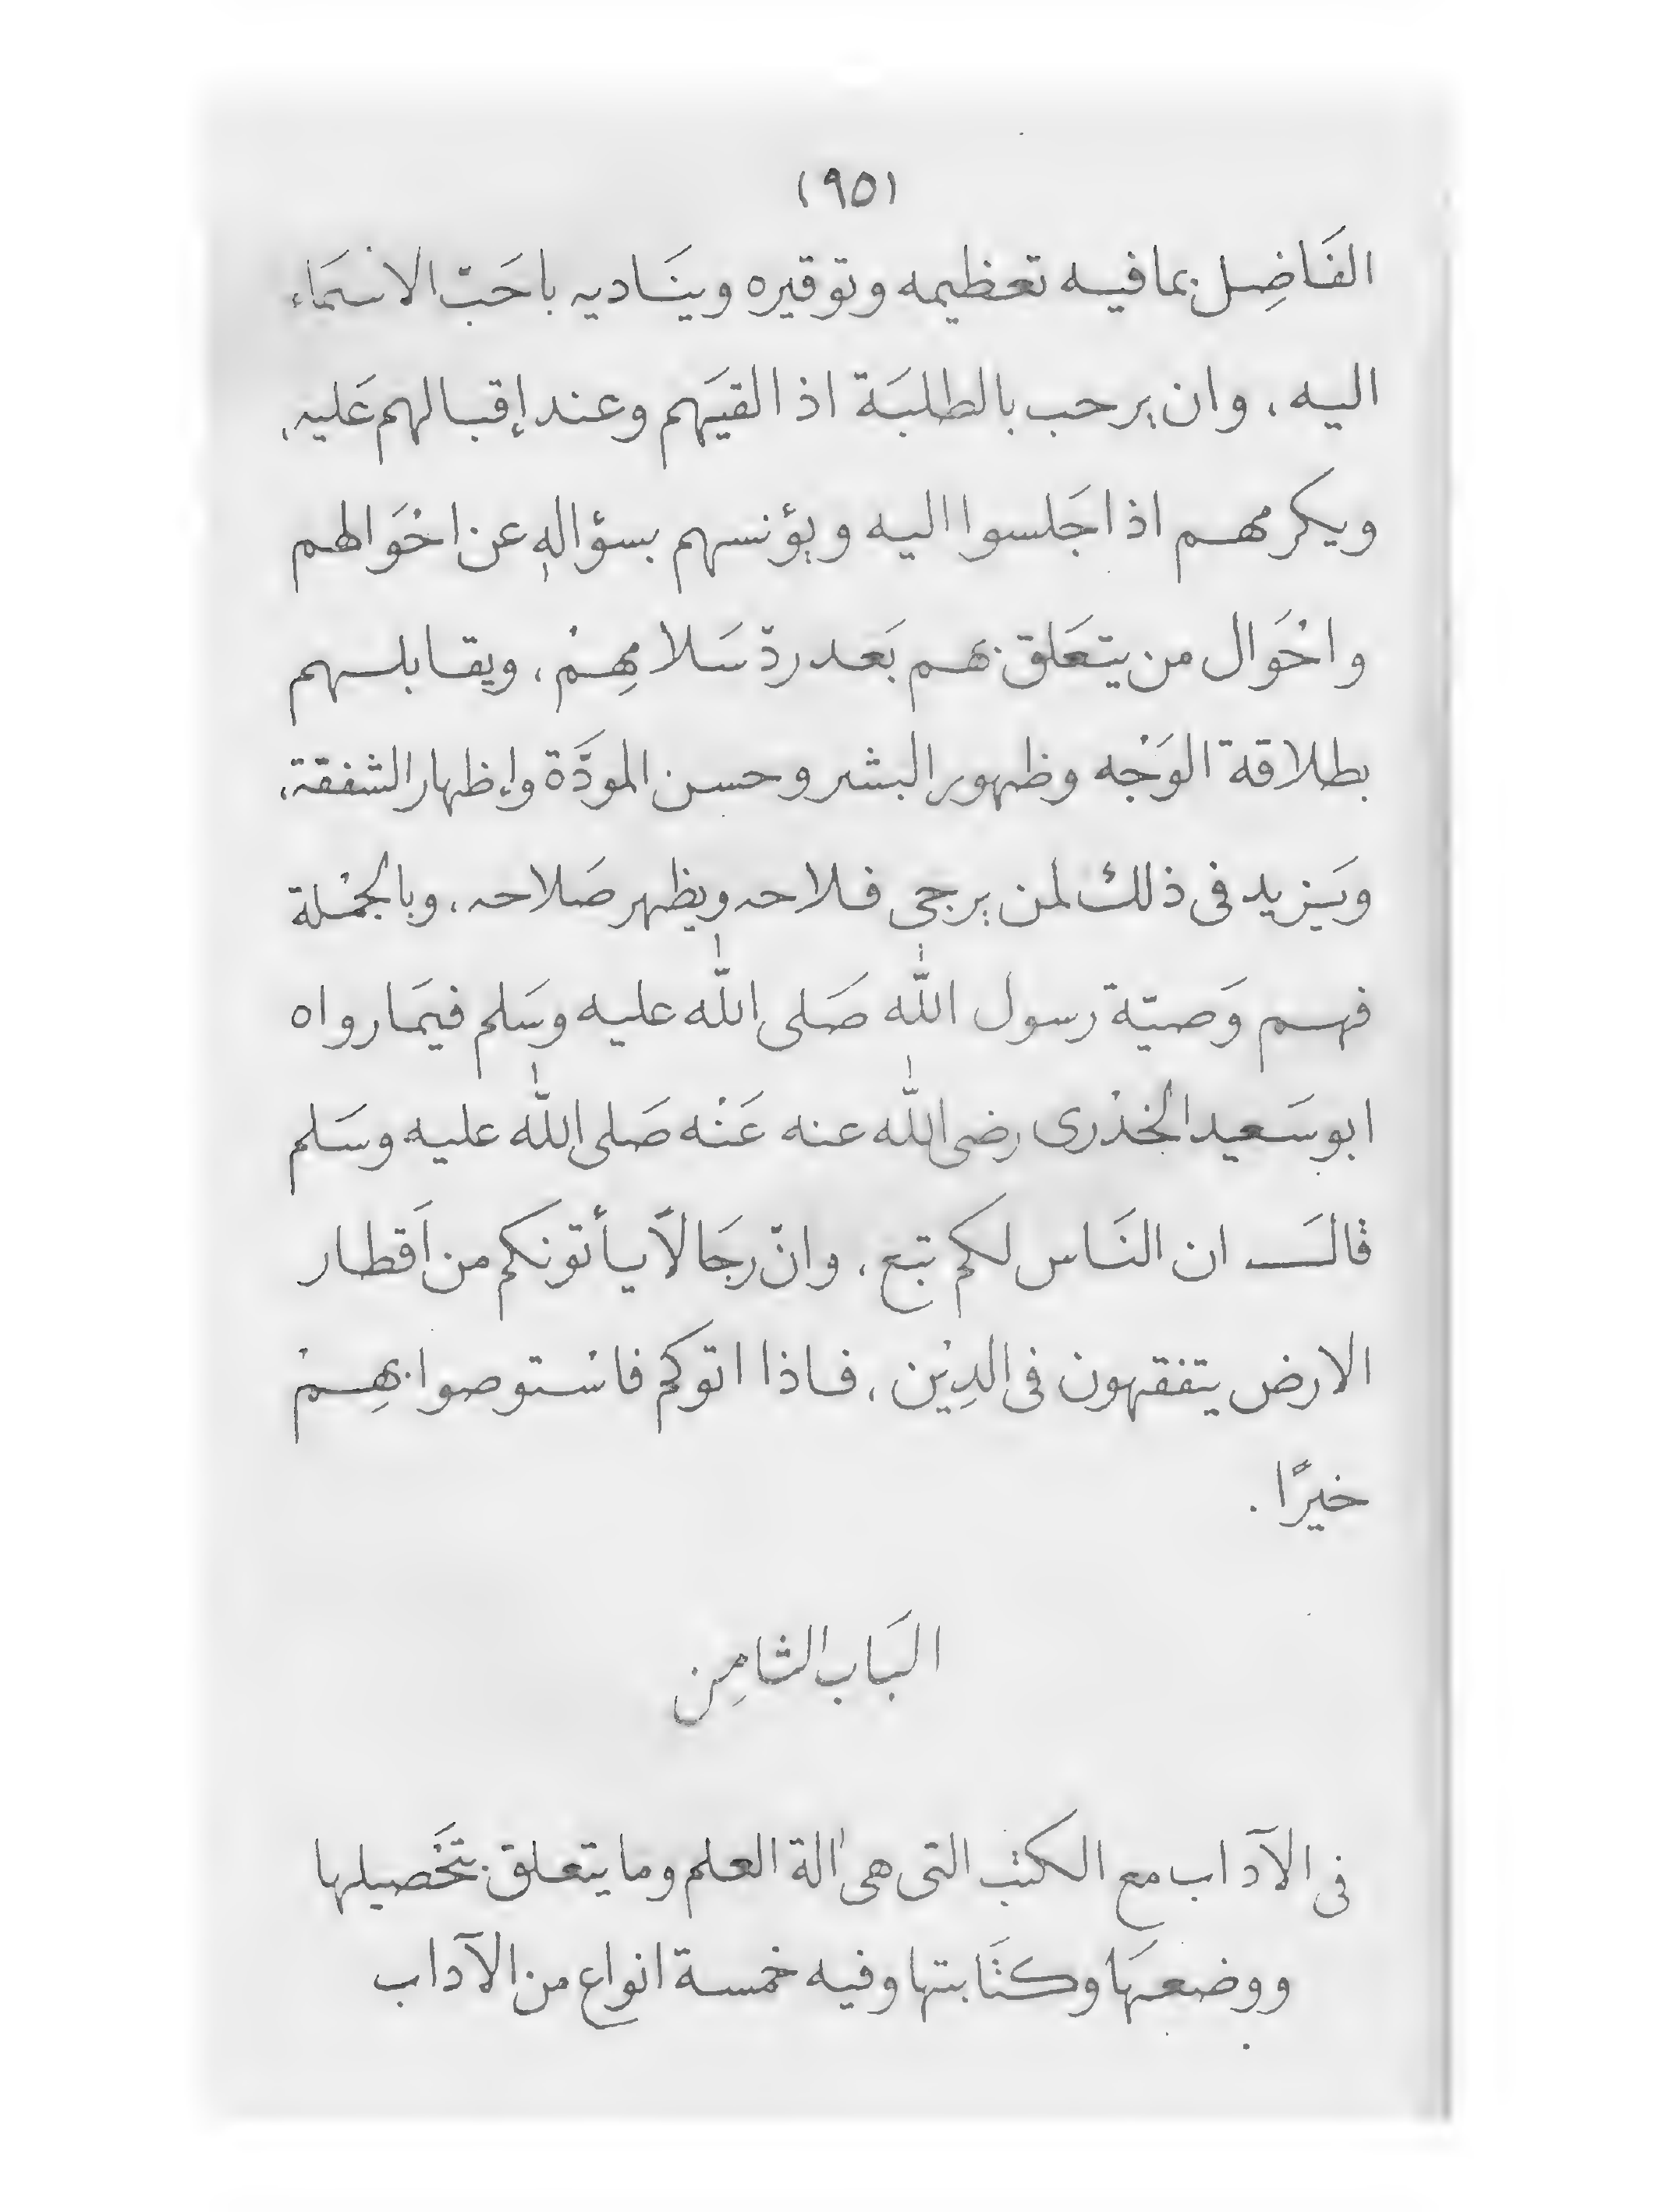 (٩٥)
الفَاضِل بما فيه تعظيمه وتوقيره وينَاديه باحَبّ الاسمَاء
اليه، وان يرحب بالطلبَة اذا لقيَهم وعند إقبالهم عَليه،
ويكرمهم اذا جَلسوا اليه ويؤنسهم بسؤالهِ عن احْوَالهم
واحْوَال من يتعَلق بهم بَعد ردّ سَلامِهِمْ، ويقابلهم
بطلاقة الوَجْه وظهور البشر وحسن المودَّة وإظهار الشفقة،
ويَزيد في ذلك لمن يرجى فلاحه ويظهر صَلاحه، وبالجمْلة
فهم وَصيّة رسول الله صَلى الله عليه وسَلم فيمَا رواه
ابو سَعيد الخذْرى رضى الله عنه عَنْه صَلى الله عليه وسَلم
قالَ ان النَاس لكم تبع، وانّ رجَالاً يأتونكم من اَقطار
الارض يتفقهون فى الدِيْن، فاذا اتوكم فاسْتوصوا بهِمْ
خيرًا.
البَاب الثامِن
فى الآداب مع الكتب التى هى الة العلم وما يتعلق بتحْصيلها
ووضعهَا وكتَابتها وفيه خمسة انواع من الآداب